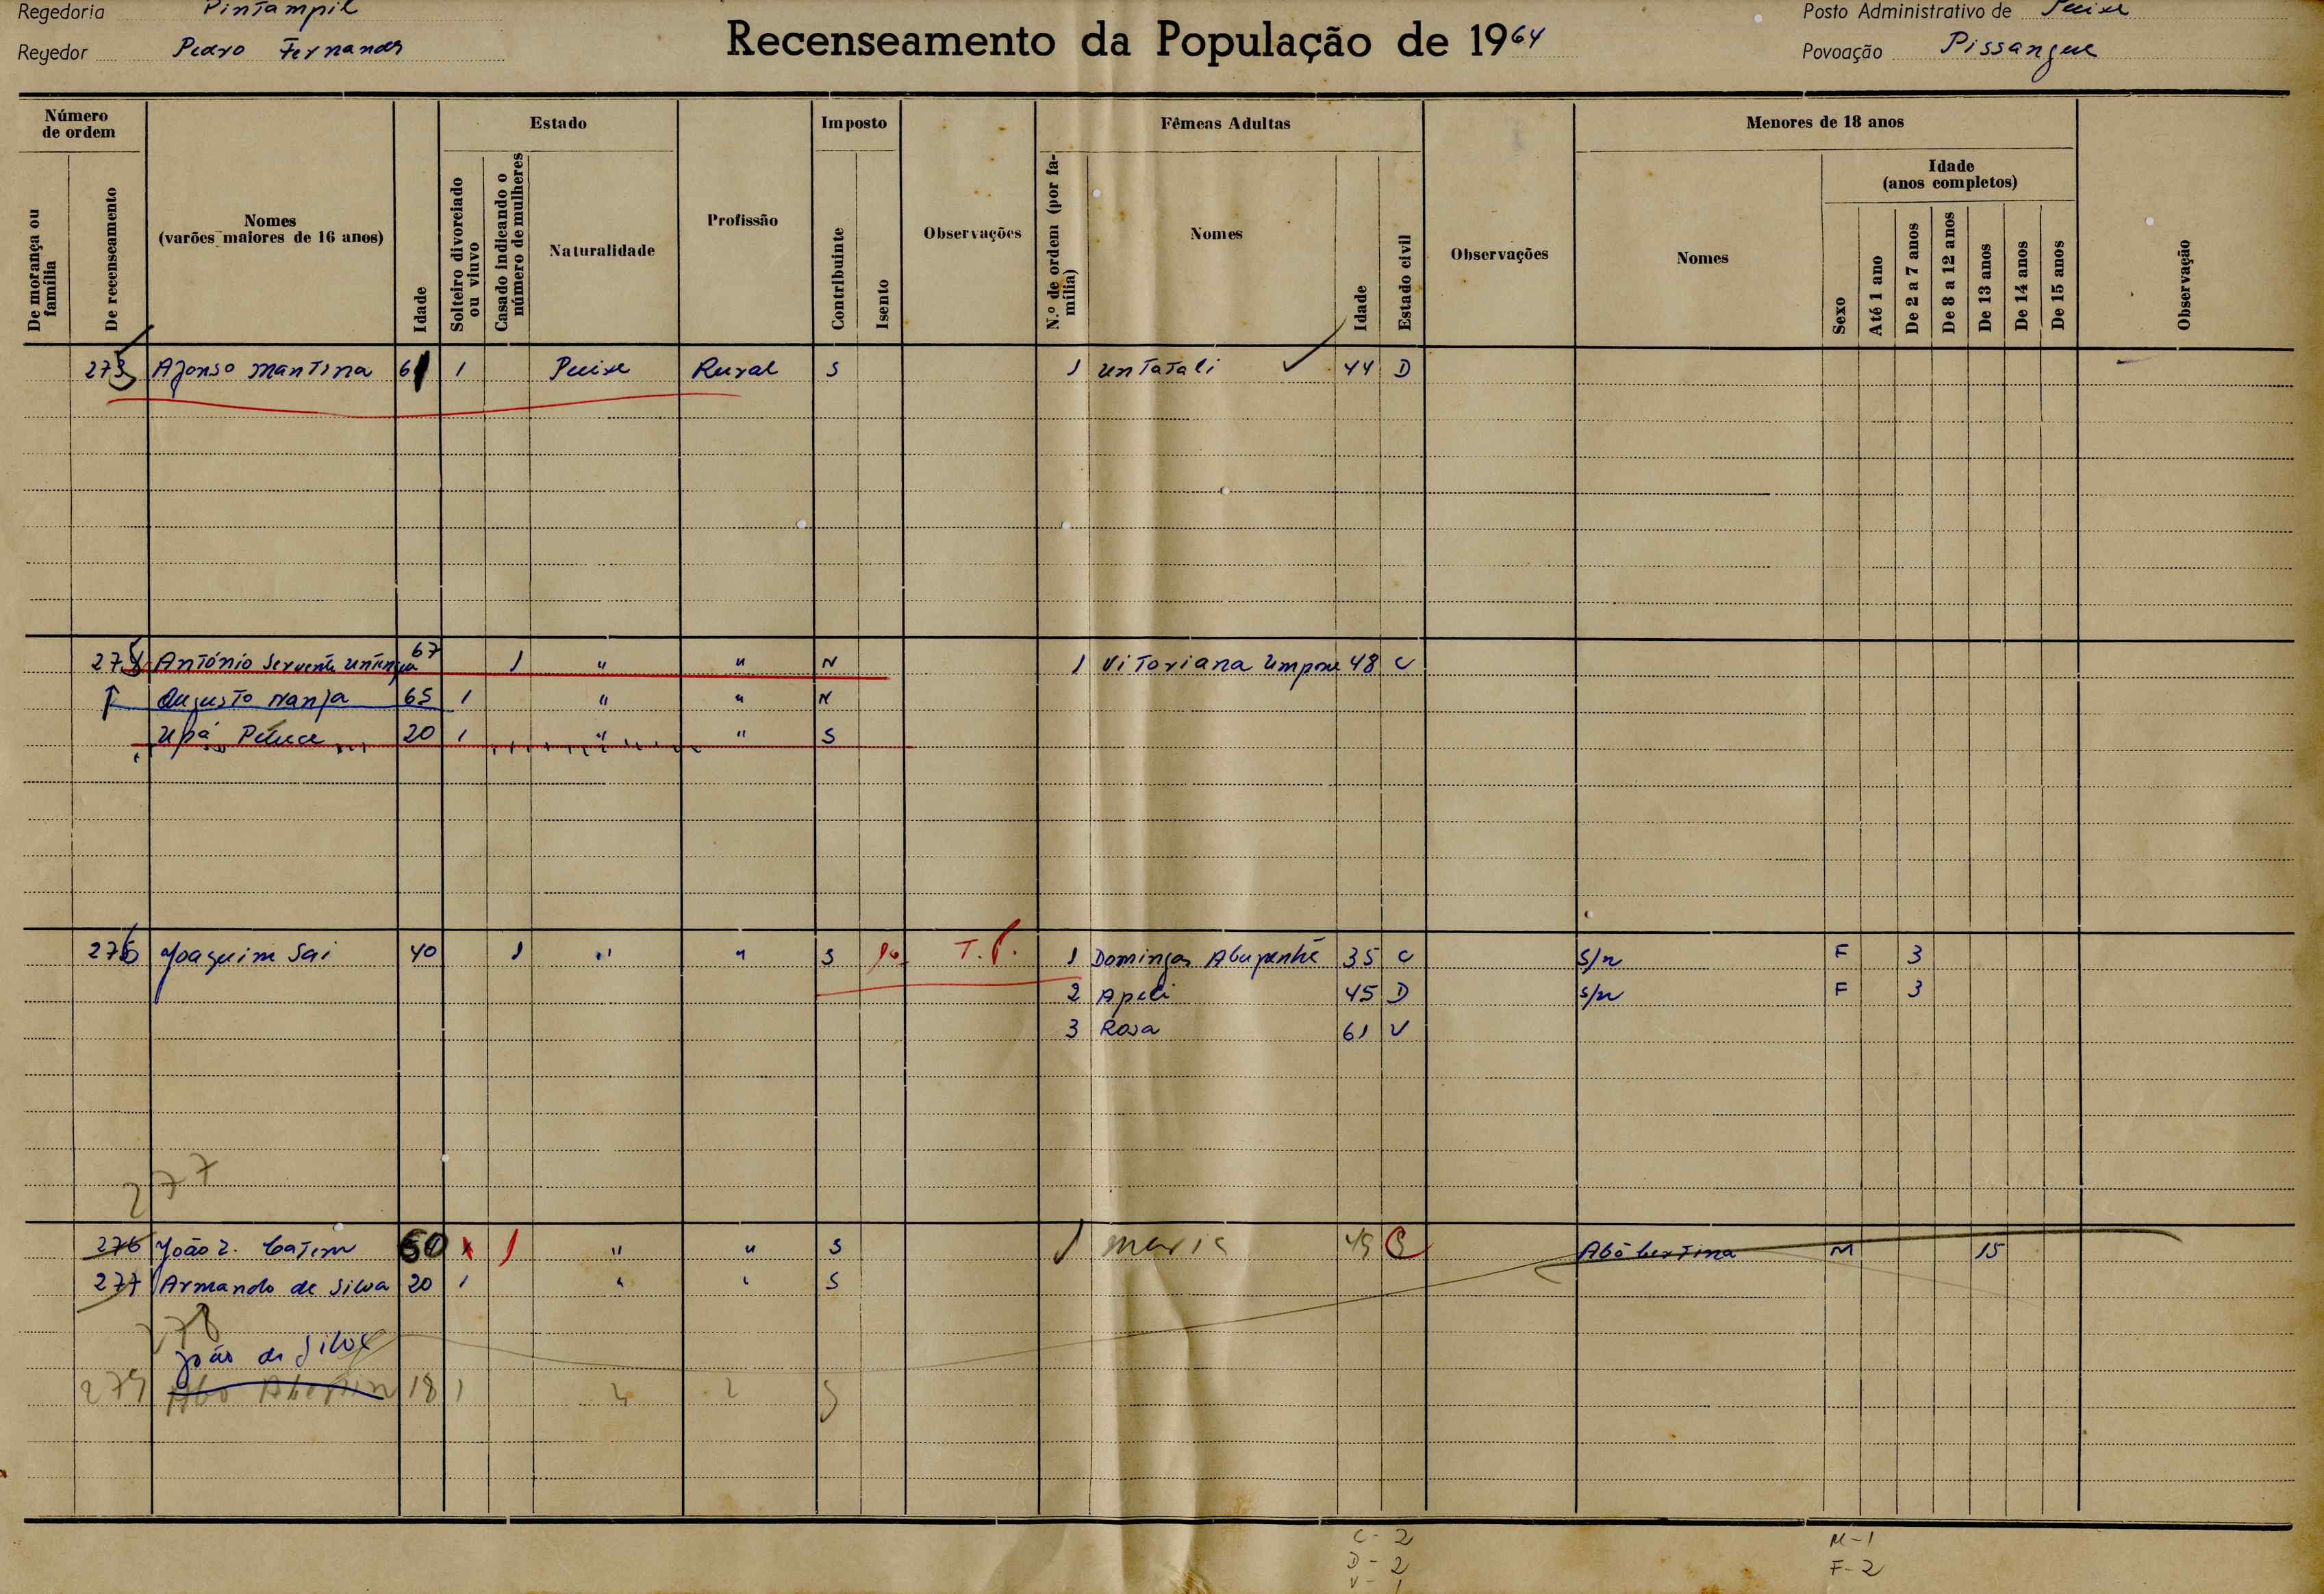 Regedoria Pintampil
Recenseamento da População de 1964
Posto Administrativo de
Regedor Pedro Fernandes
Povoação Pissangue
Número de ordem
Estado
Imposto
Fêmeas Adultas
Menores de 18 anos
De morança ou família
De recenseamento
Nomes (varões maiores de 16 anos)
Idade
Solteiro divorciado ou viuvo
Casado indicando o número de mulheres
Naturalidade
Profissão
Contribuinte
Isento
Observações
N.º de ordem (por família)
Nomes
Idade
Estado civil
Observações
Nomes
Idade (anos completos)
Sexo
Até 1 ano
De 2 a 7 anos
De 8 a 12 anos
De 13 anos
De 14 anos
De 15 anos
Observação
Afonso Mantina 61 1 Rural S 1 Untatali 44 D
António Servente 67 1 " " N 1 Vitoriana 48 C
Augusto Nanja 65 1 " " N
Upá 20 1 " " S
276 Joaquim Sai 40 1 " " S T.P. 1 Domingas 35 C S/n F 3
2 Apili 45 D S/n F 3
3 Rosa 61 V
277
276 João 60 1 " " S 1 Maria C M 15
277 Armando de Silva 20 1 " " S
278
João de Silva
279 18 1 S
C - 2
M - 1
D - 2
F - 2
V - 1